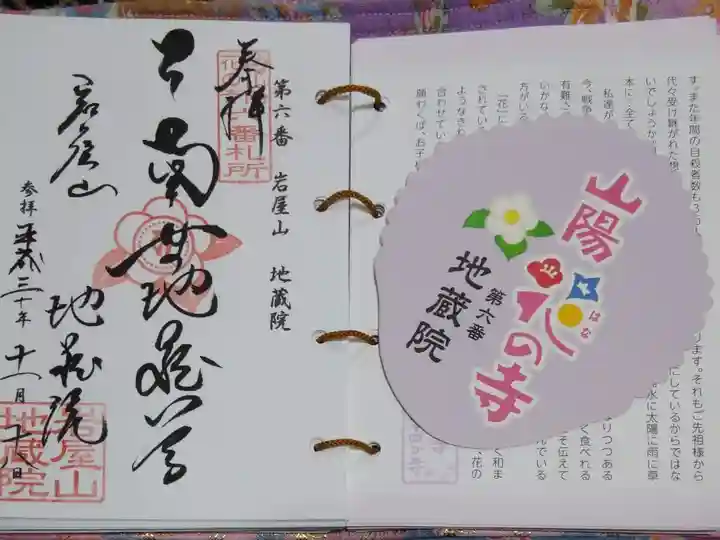 奉拝
第六番 岩屋山 地蔵院
南無地蔵尊
岩屋山
地蔵院
参拝 平成三十年 十一月十八日
番札所
岩屋山
地蔵院
山陽
花の寺
はな
第六番
地蔵院
す。また年間の自殺者数も3
代々受け継がれた
いでしょうか
本に…全て
私達が
今、戦争
有難
いかな
方がいる
「花」に
されている
ような
合わせてい
願わくば、お子
ります。それもご先祖様から
にしているからではな
水に太陽に雨に草
なりつつある
く食べれる
そ伝えて
んでいる
く和ま
、花の